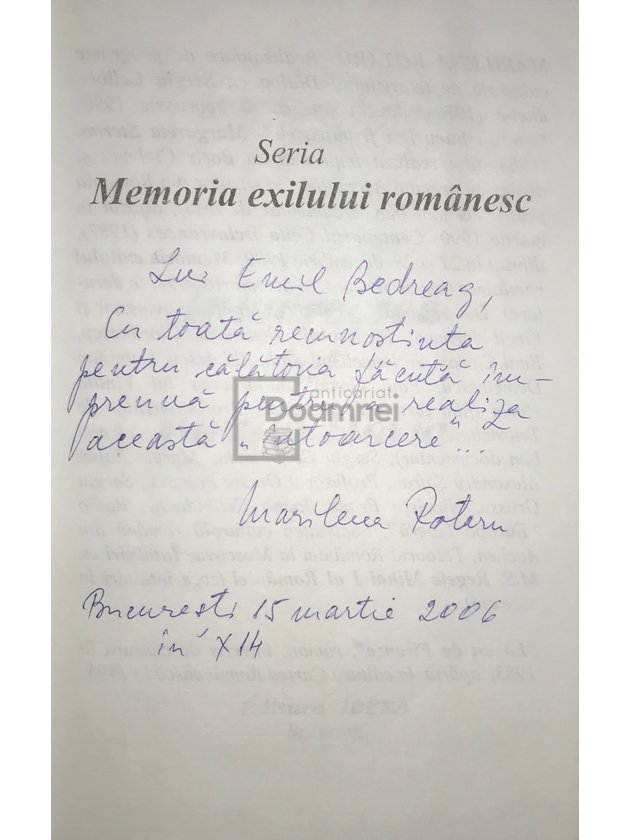 Seria
Memoria exilului românesc
Lui Emil Bedreag,
Cu toată recunostinta
pentru călătoria făcută îm-
preună pentru a realiza
această „întoarcere"...
Marilena Rotaru
Bucuresti 15 martie 2006
în X14
anticariat
Doamnei